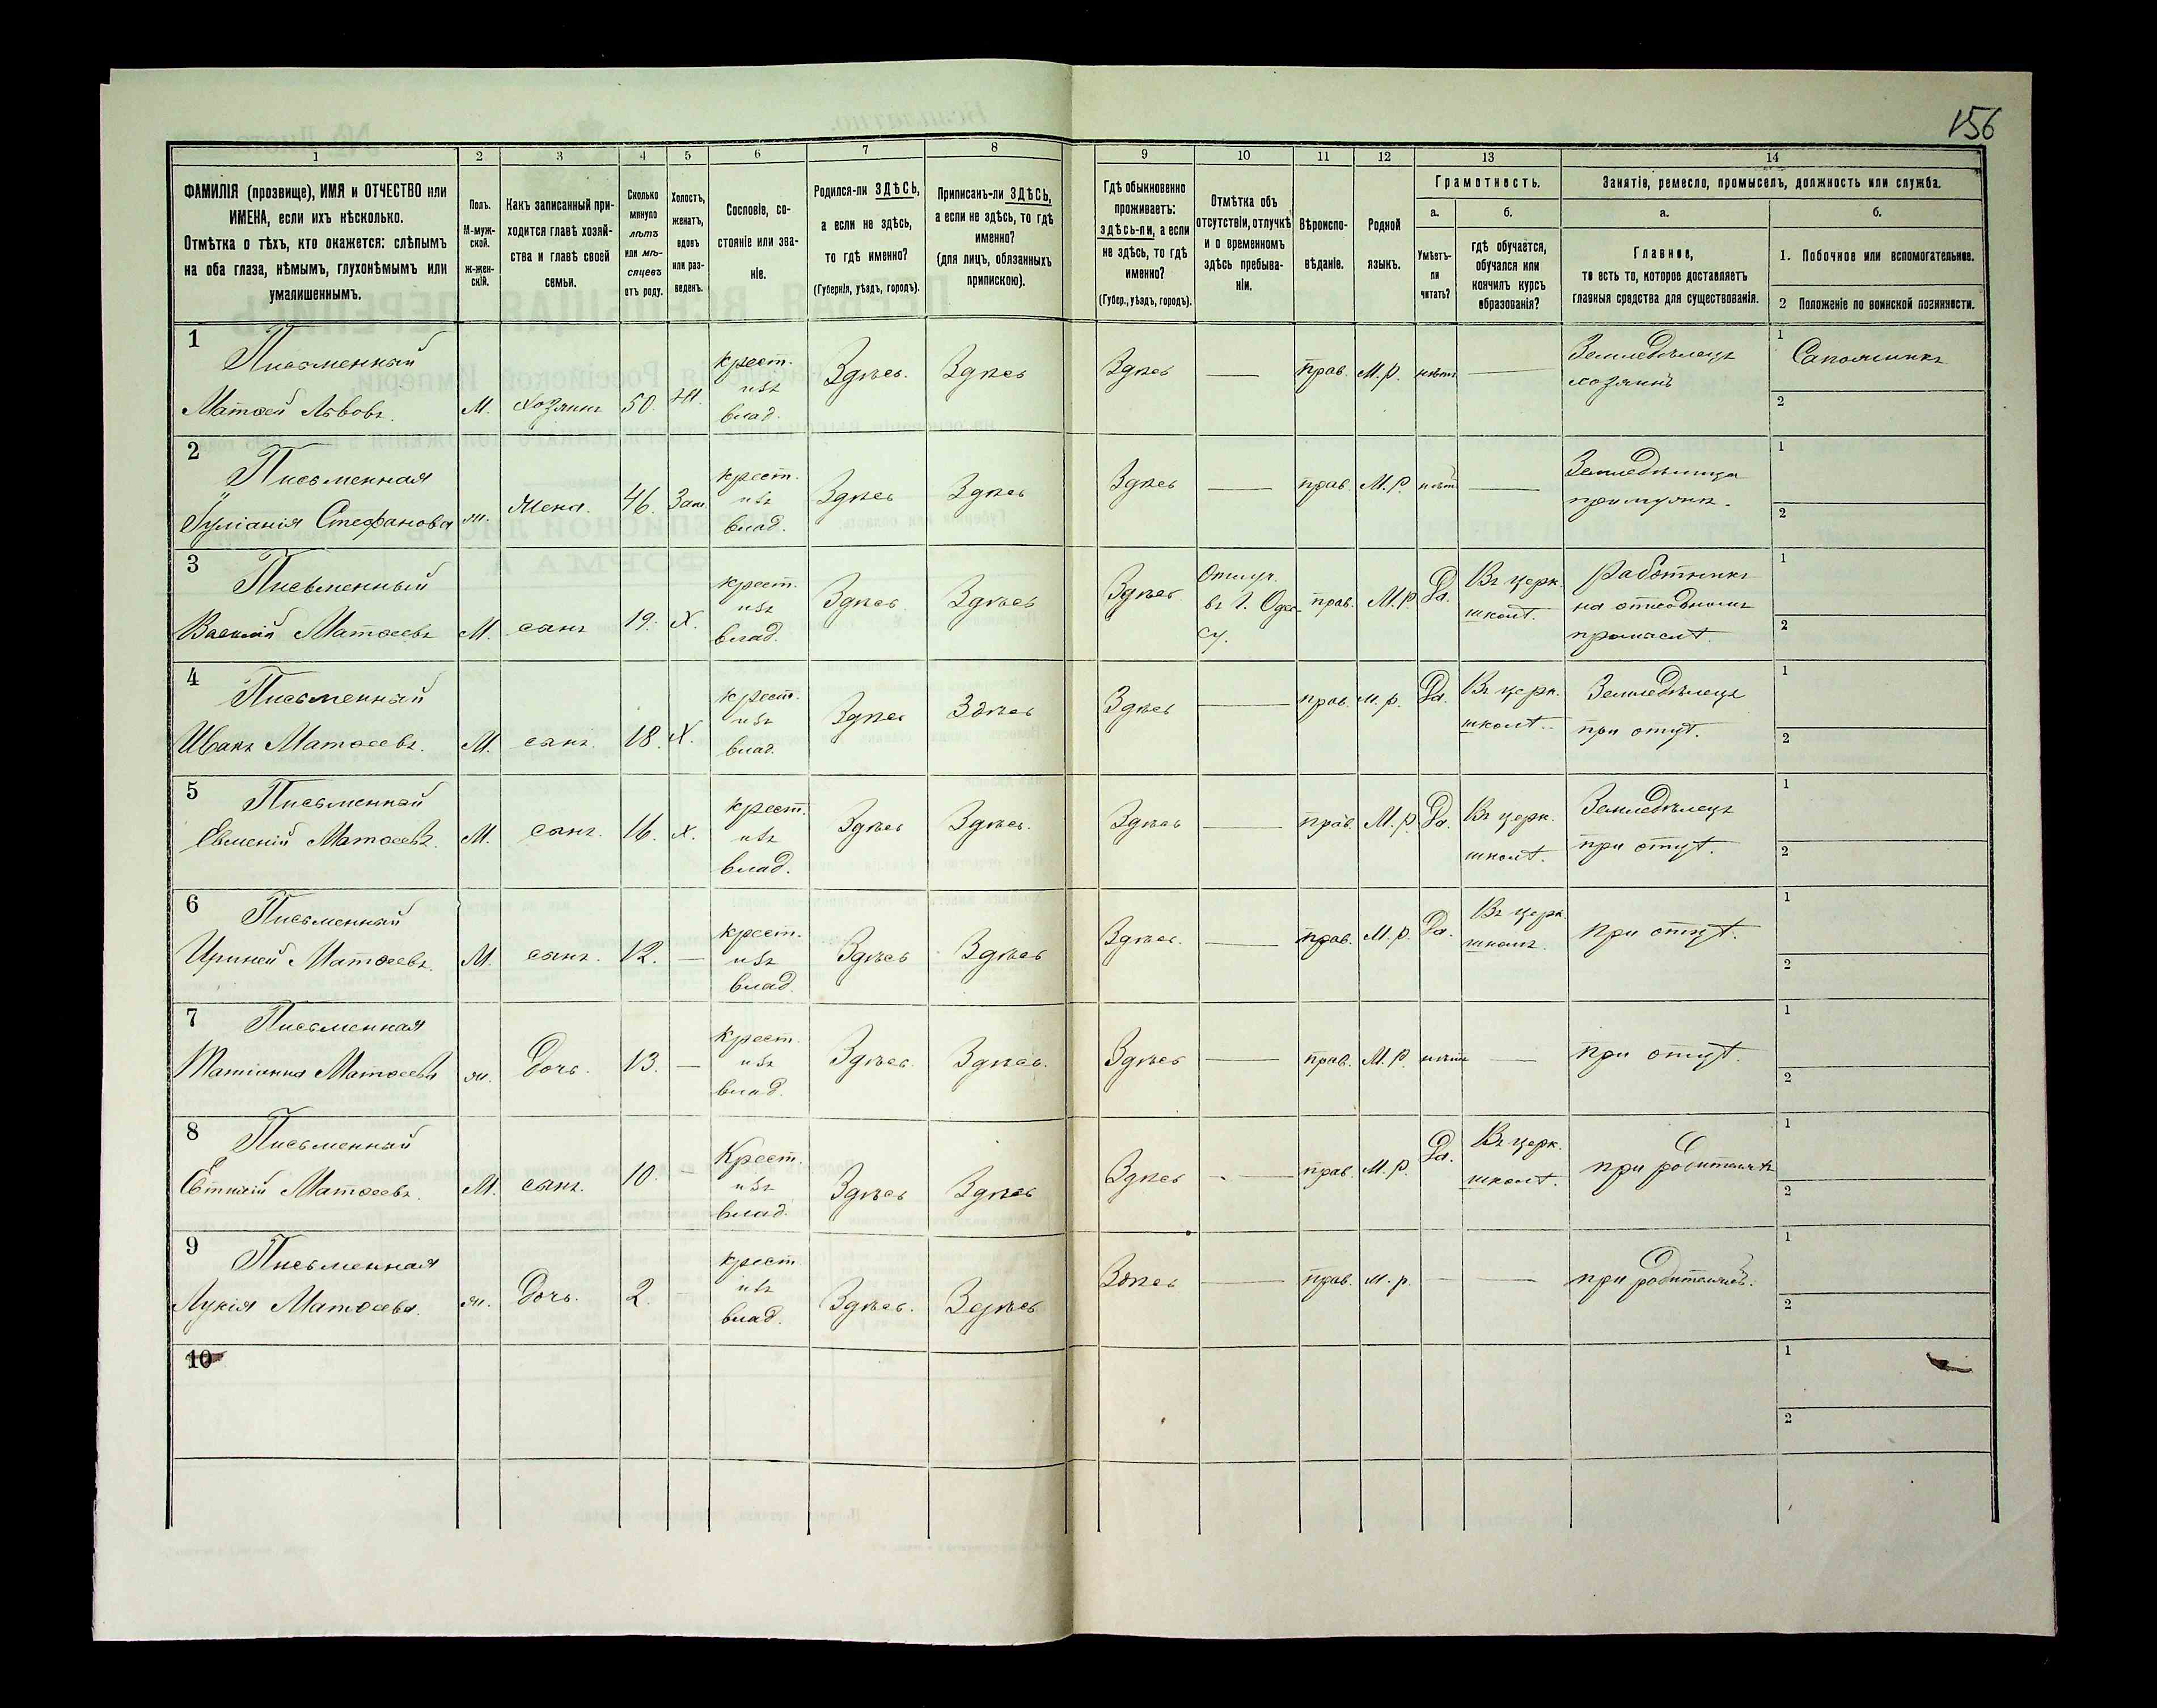 156
1 2 3 4 5 6 7 8 9 10 11 12 13 14
ФАМИЛІЯ (прозвище), ИМЯ и ОТЧЕСТВО или
ИМЕНА, если ихъ нѣсколько.
Отмѣтка о тѣхъ, кто окажется: слѣпымъ
на оба глаза, нѣмымъ, глухонѣмымъ или
умалишеннымъ.
Полъ.
М-муж-
ской.
ж-жен-
скій.
Какъ записанный при-
ходится главѣ хозяй-
ства и главѣ своей
семьи.
Сколько
минуло
лѣтъ
или мѣ-
сяцевъ
отъ роду.
Холостъ,
женатъ,
вдовъ
или раз-
веденъ.
Сословіе, со-
стояніе или зва-
ніе.
Родился-ли ЗДѢСЬ,
а если не здѣсь,
то гдѣ именно?
(Губернія, уѣздъ, городъ).
Приписанъ-ли ЗДѢСЬ,
а если не здѣсь, то гдѣ
именно?
(для лицъ, обязанныхъ
припискою).
Гдѣ обыкновенно
проживаетъ:
здѣсь-ли, а если
не здѣсь, то гдѣ
именно?
(Губер., уѣздъ, городъ).
Отмѣтка объ
отсутствіи, отлучкѣ
и о временномъ
здѣсь пребыва-
ніи.
Вѣроиспо-
вѣданіе.
Родной
языкъ.
Грамотность.
а.
Умѣетъ-
ли
читать?
б.
гдѣ обучается,
обучался или
кончилъ курсъ
образованія?
Занятіе, ремесло, промыселъ, должность или служба.
а.
Главное,
то есть то, которое доставляетъ
главныя средства для существованія.
б.
1. Побочное или вспомогательное.
2 Положеніе по воинской повинности.
1
Письменный
Матѳей Львовъ.
М.
Хозяинъ
50.
Ж.
крест.
изъ
влад.
Здѣсь.
Здѣсь
Здѣсь
—
прав.
М.р.
нѣтъ
—
Земледѣлецъ
хозяинъ
1
Сапожникъ
2
2
Письменная
Іуліанія Стефанова
ж.
Жена.
46.
Зам.
крест.
изъ
влад.
Здѣсь
Здѣсь
Здѣсь
—
прав.
М.р.
нѣтъ
—
Земледѣлица
при мужѣ.
1
2
3
Письменный
Василій Матѳеевъ
М.
сынъ
19.
Х.
крест.
изъ
влад.
Здѣсь
Здѣсь
Здѣсь
Отлуч.
въ г. Одес-
су.
прав.
М.р.
Да.
Въ церк.
школѣ.
Работникъ
на отхожомъ
промыслѣ.
1
2
4
Письменный
Иванъ Матѳеевъ.
М.
сынъ.
18.
Х.
крест.
изъ
влад.
Здѣсь
Здѣсь
Здѣсь
—
прав.
м.р.
Да.
Въ церк.
школѣ.
Земледѣлецъ
при отцѣ.
1
2
5
Письменный
Евменій Матѳеевъ.
М.
сынъ.
16.
х.
крест.
изъ
влад.
Здѣсь
Здѣсь.
Здѣсь
—
прав.
М.р.
Да.
Въ церк.
школѣ.
Земледѣлецъ
при отцѣ.
1
2
6
Письменный
Ириней Матѳеевъ.
М.
сынъ.
12.
—
крест.
изъ
влад.
Здѣсь
Здѣсь
Здѣсь.
—
прав.
М.р.
Да.
Въ церк.
школѣ.
при отцѣ.
1
2
7
Письменная
Татіанна Матѳеева
ж.
Дочь.
13.
—
Крест.
изъ
влад.
Здѣсь.
Здѣсь.
Здѣсь
—
прав.
М.р.
нѣтъ
—
при отцѣ.
1
2
8
Письменный
Матѳеевъ.
М.
сынъ.
10.
—
Крест.
изъ
влад.
Здѣсь
Здѣсь
Здѣсь
—
прав.
М.р.
Да.
Въ церк.
школѣ.
при родителяхъ
1
2
9
Письменная
Лукія Матѳеева.
ж.
Дочь.
2.
—
крест.
изъ
влад.
Здѣсь.
Здѣсь
Здѣсь
—
прав.
м.р.
—
—
при родителяхъ.
1
2
10
1
2